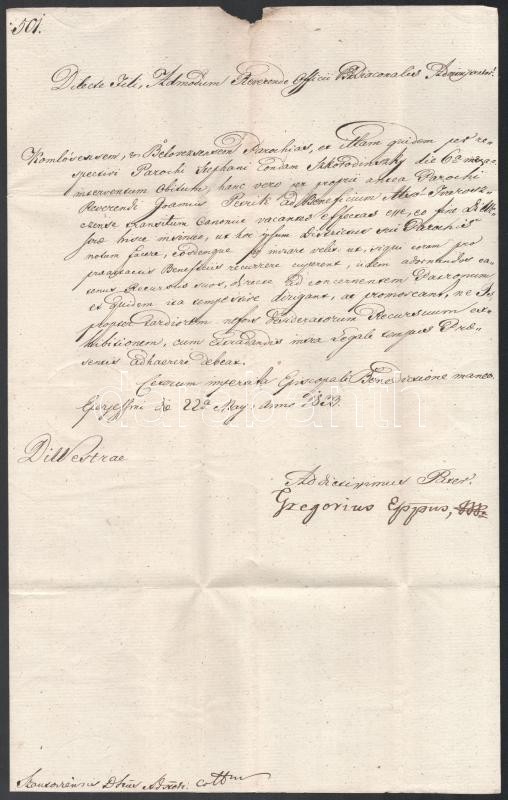 501.
Dilecte Fili, Admodum Reverende Officii Vdiaconalis Administrator!
Komlóvensem, & Belovezsensem Parochias, et illam quidem per re
spectivi Parochi Stephani Condam die 6a
interventum Obitum, hanc vero per proprii antea Parochi
Reverendi Joannis Petrik ad Beneficium
transitum Canonice vacantes effectas esse, eo fine Dil. Ve
stræ hisce insinuo, ut hoc ipsum Districtus sui Parochis
notum faciat, eosdemque inviare velit, ut, siqui eorum pro
præattactis Beneficiis recurrere cuperent, iidem adornandos ea
tenus Recursus suos, directe ad concernentem Patronum
et quidem ita tempestive dirigant, ac promoveant, ne
propter tardiorem nefors desideratorum Recursuum ex
hibitionem, cum Extradandis intra Legale tempus Præ
sentis adhærere debeat.
Ceterum impertita Episcopali Benedictione maneo.
Eperjessini die 22a Maji Anno 1823.
Dil. Vestrae
Addictissimus Pater
Gregorius Eppus,